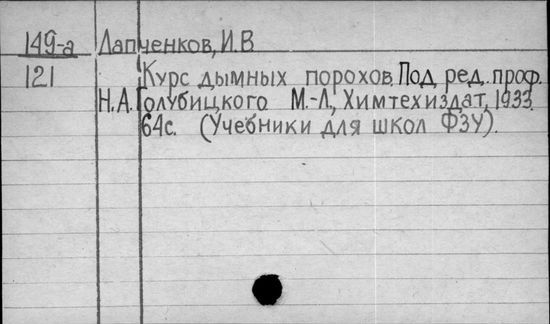 149-а Лапченков, И.В
121 Курс дымных порохов. Под ред. проф.
Н.А. Голубицкого М.-Л., Химтехиздат, 1933.
64с. (Учебники для школ ФЗУ).